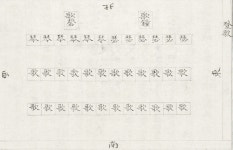 北
琴 琴 琴 琴 琴 琴 瑟 瑟 瑟 瑟 瑟 瑟
西
歌 歌 歌 歌 歌 歌 歌 歌 歌 歌 歌 歌
東
歌 歌 歌 歌 歌 歌 歌 歌 歌 歌 歌 歌
南